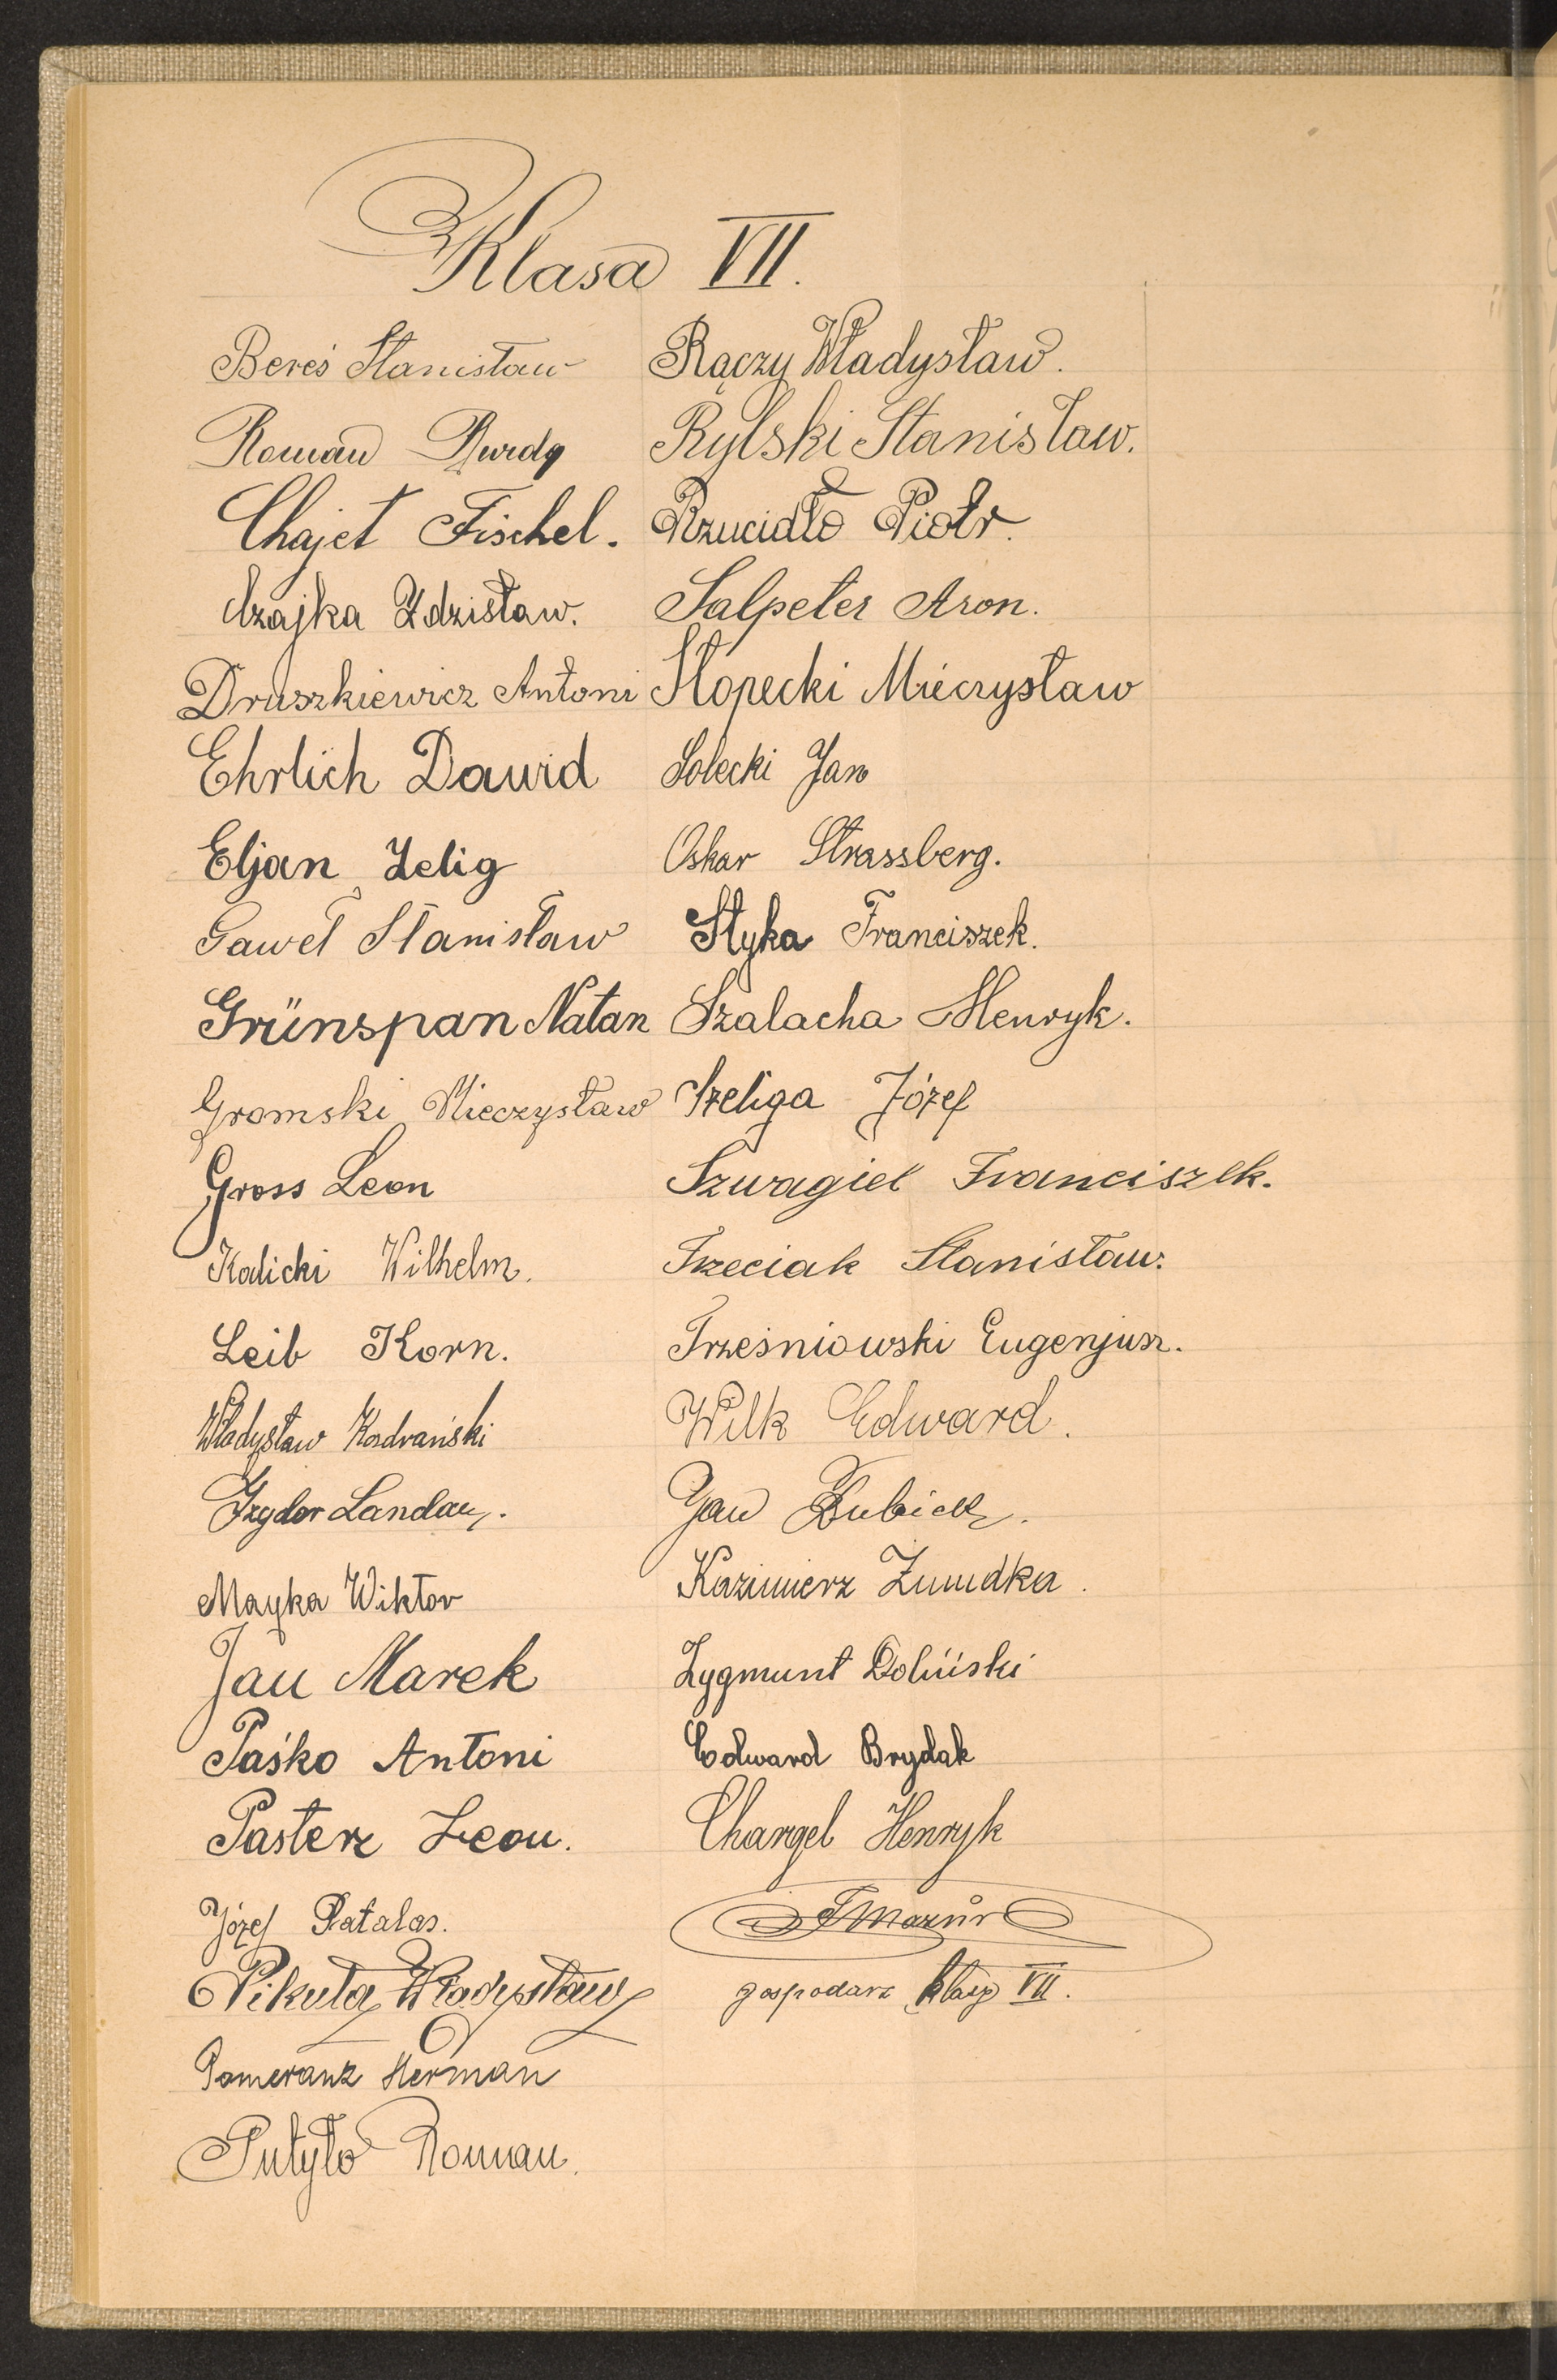 Klasa VII.
Bereś Stanisław
Roman Burda
Chajet Fischel.
Czajka Zdzisław.
Druszkiewicz Antoni
Ehrlich Dawid
Eljan Zelig
Gaweł Stanisław
Grünspan Natan
Gromski Mieczysław
Gross Leon
Kalicki Wilhelm.
Leib Korn.
Władysław Kondrański
Izydor Landau.
Mayka Wiktor
Jan Marek
Paśko Antoni
Pasterz Leon.
Józef Patalas.
Pikuła Władysław
Pomeranz Herman
Putyło Roman.
Rączy Władysław.
Rylski Stanisław.
Rzucidło Piotr.
Salpeter Aron.
Słopecki Mieczysław
Solecki Jan
Oskar Strassberg.
Styka Franciszek.
Szalacha Henryk.
Szeliga Józef
Szwagiel Franciszek.
Trzeciak Stanisław.
Trześniowski Eugenjusz.
Wilk Edward.
Jan Zubicki.
Kazimierz Żmudka.
Zygmunt Doliński
Edward Brydak
Chargel Henryk
Mazur
gospodarz klasy VII.